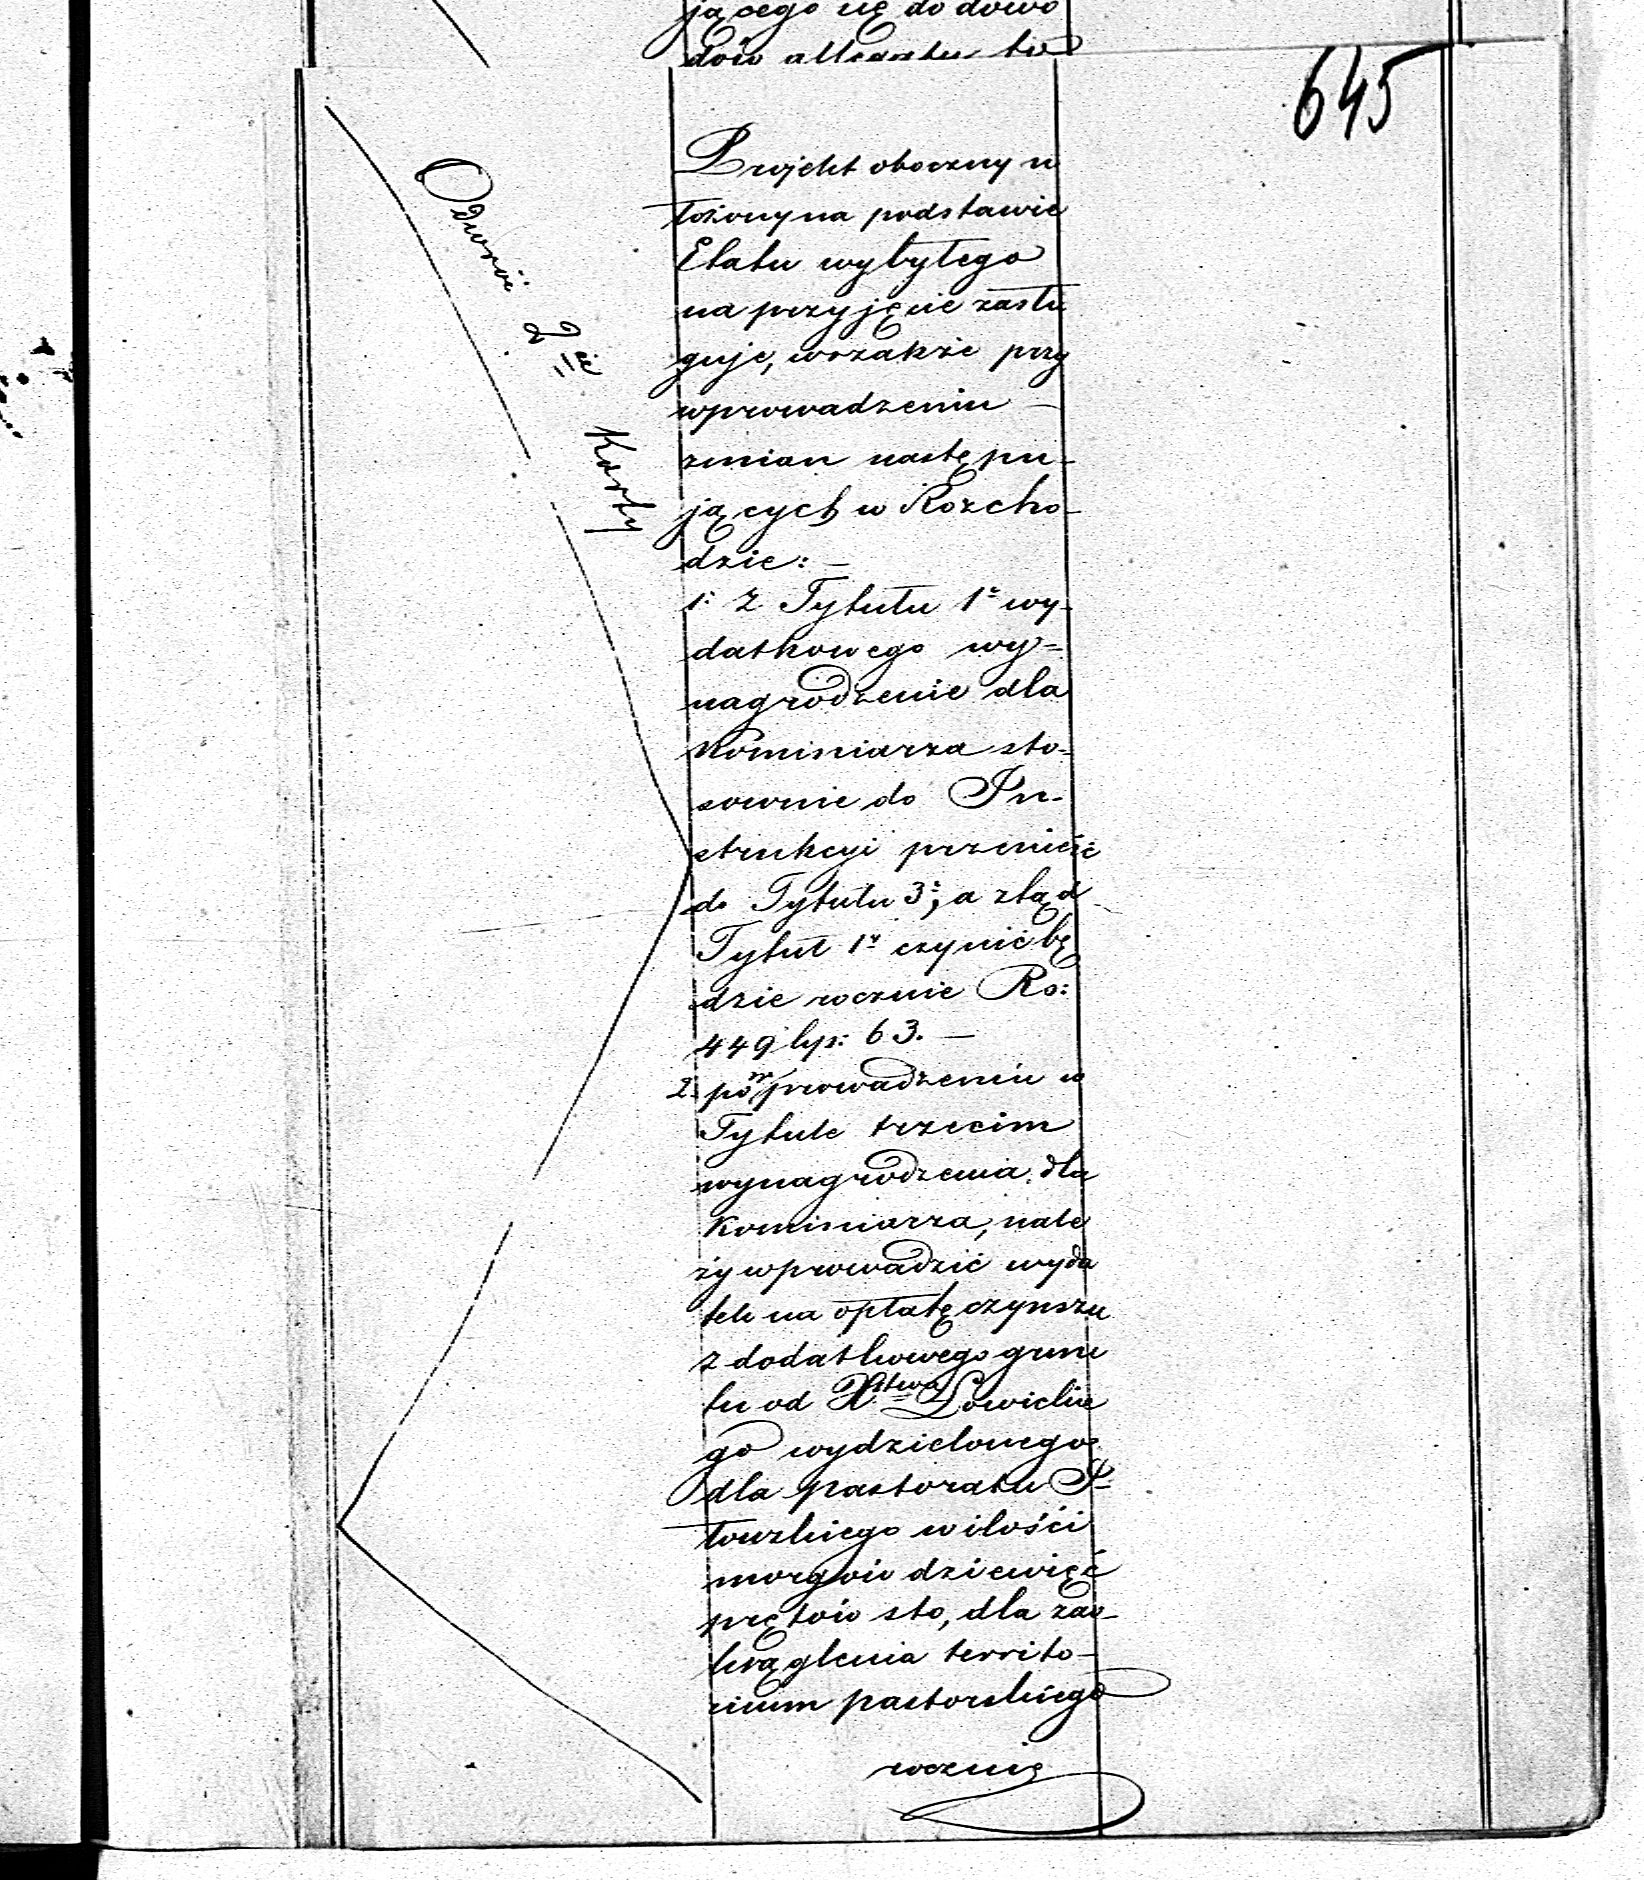 jącego się do dowo
dów
645
Projekt oboczny u
łożony na podstawie
Etatu wybyłego
na przyjęcie zasłu
guje, wszakże przy
wprowadzeniu —
zmian nastę pu-
jących w Rozcho-
dzie: —
1: Z Tytułu 1º wy-
datkowego wy=
nagrodzenie dla
Kominiarza sto-
sownie do In-
strukcyi przenieść
do Tytułu 3º, a ztąd
Tytuł 1y czynić bę
dzie rocznie Rs:
449 kp: 63. —
2. po wprowadzeniu w
Tytule trzecim
wynagrodzenia dla
Kominiarza, nale
ży wprowadzić wyda
tek na opłatę czynszu
z dodatkowego grun
tu od Xstwa Łowickie
go wydzielonego
dla pastoratu I-
łowskiego w ilości
morgów dziewięć
prętów sto, dla zao-
krąglenia territo-
rium pastorskiego
rocznie
Odwróć 2ie Karty